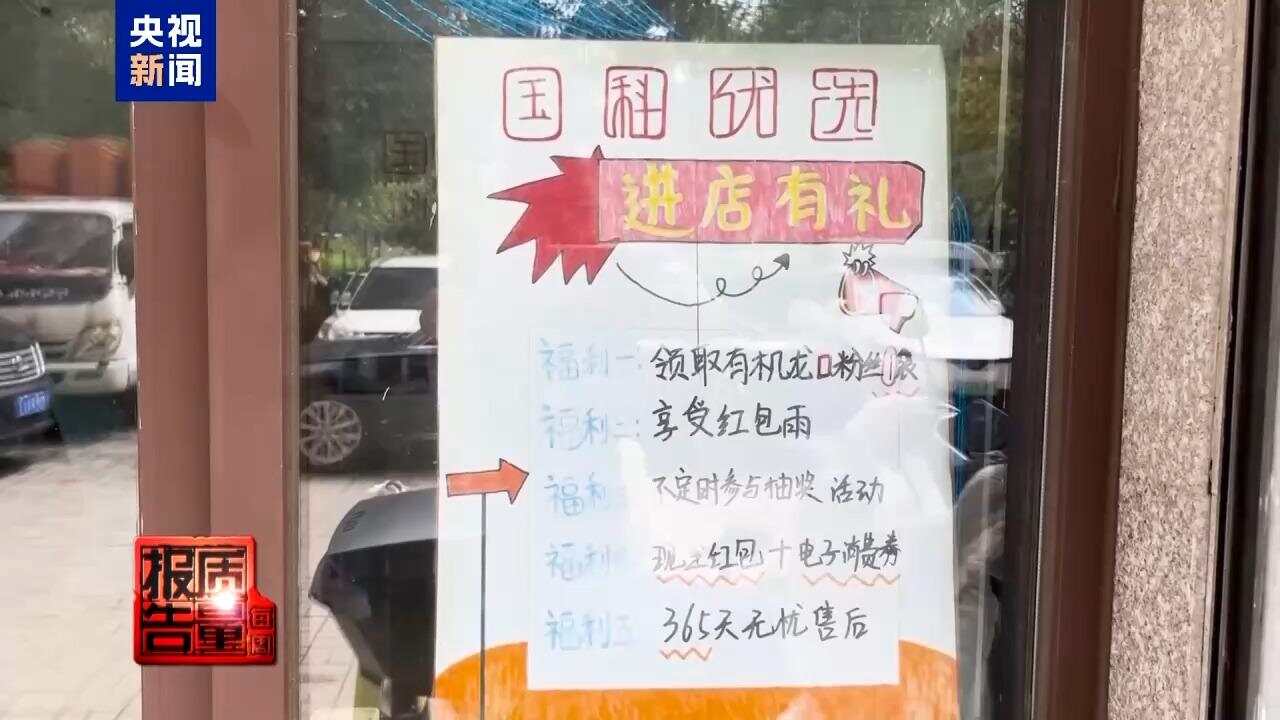 央视
新闻
国科优选
进店有礼
福利一：领取有机龙口粉丝
福利二：享受红包雨
福利 不定时参与抽奖活动
福利 红包+电子消费券
福利五 365天无忧售后
质量
报告
每周